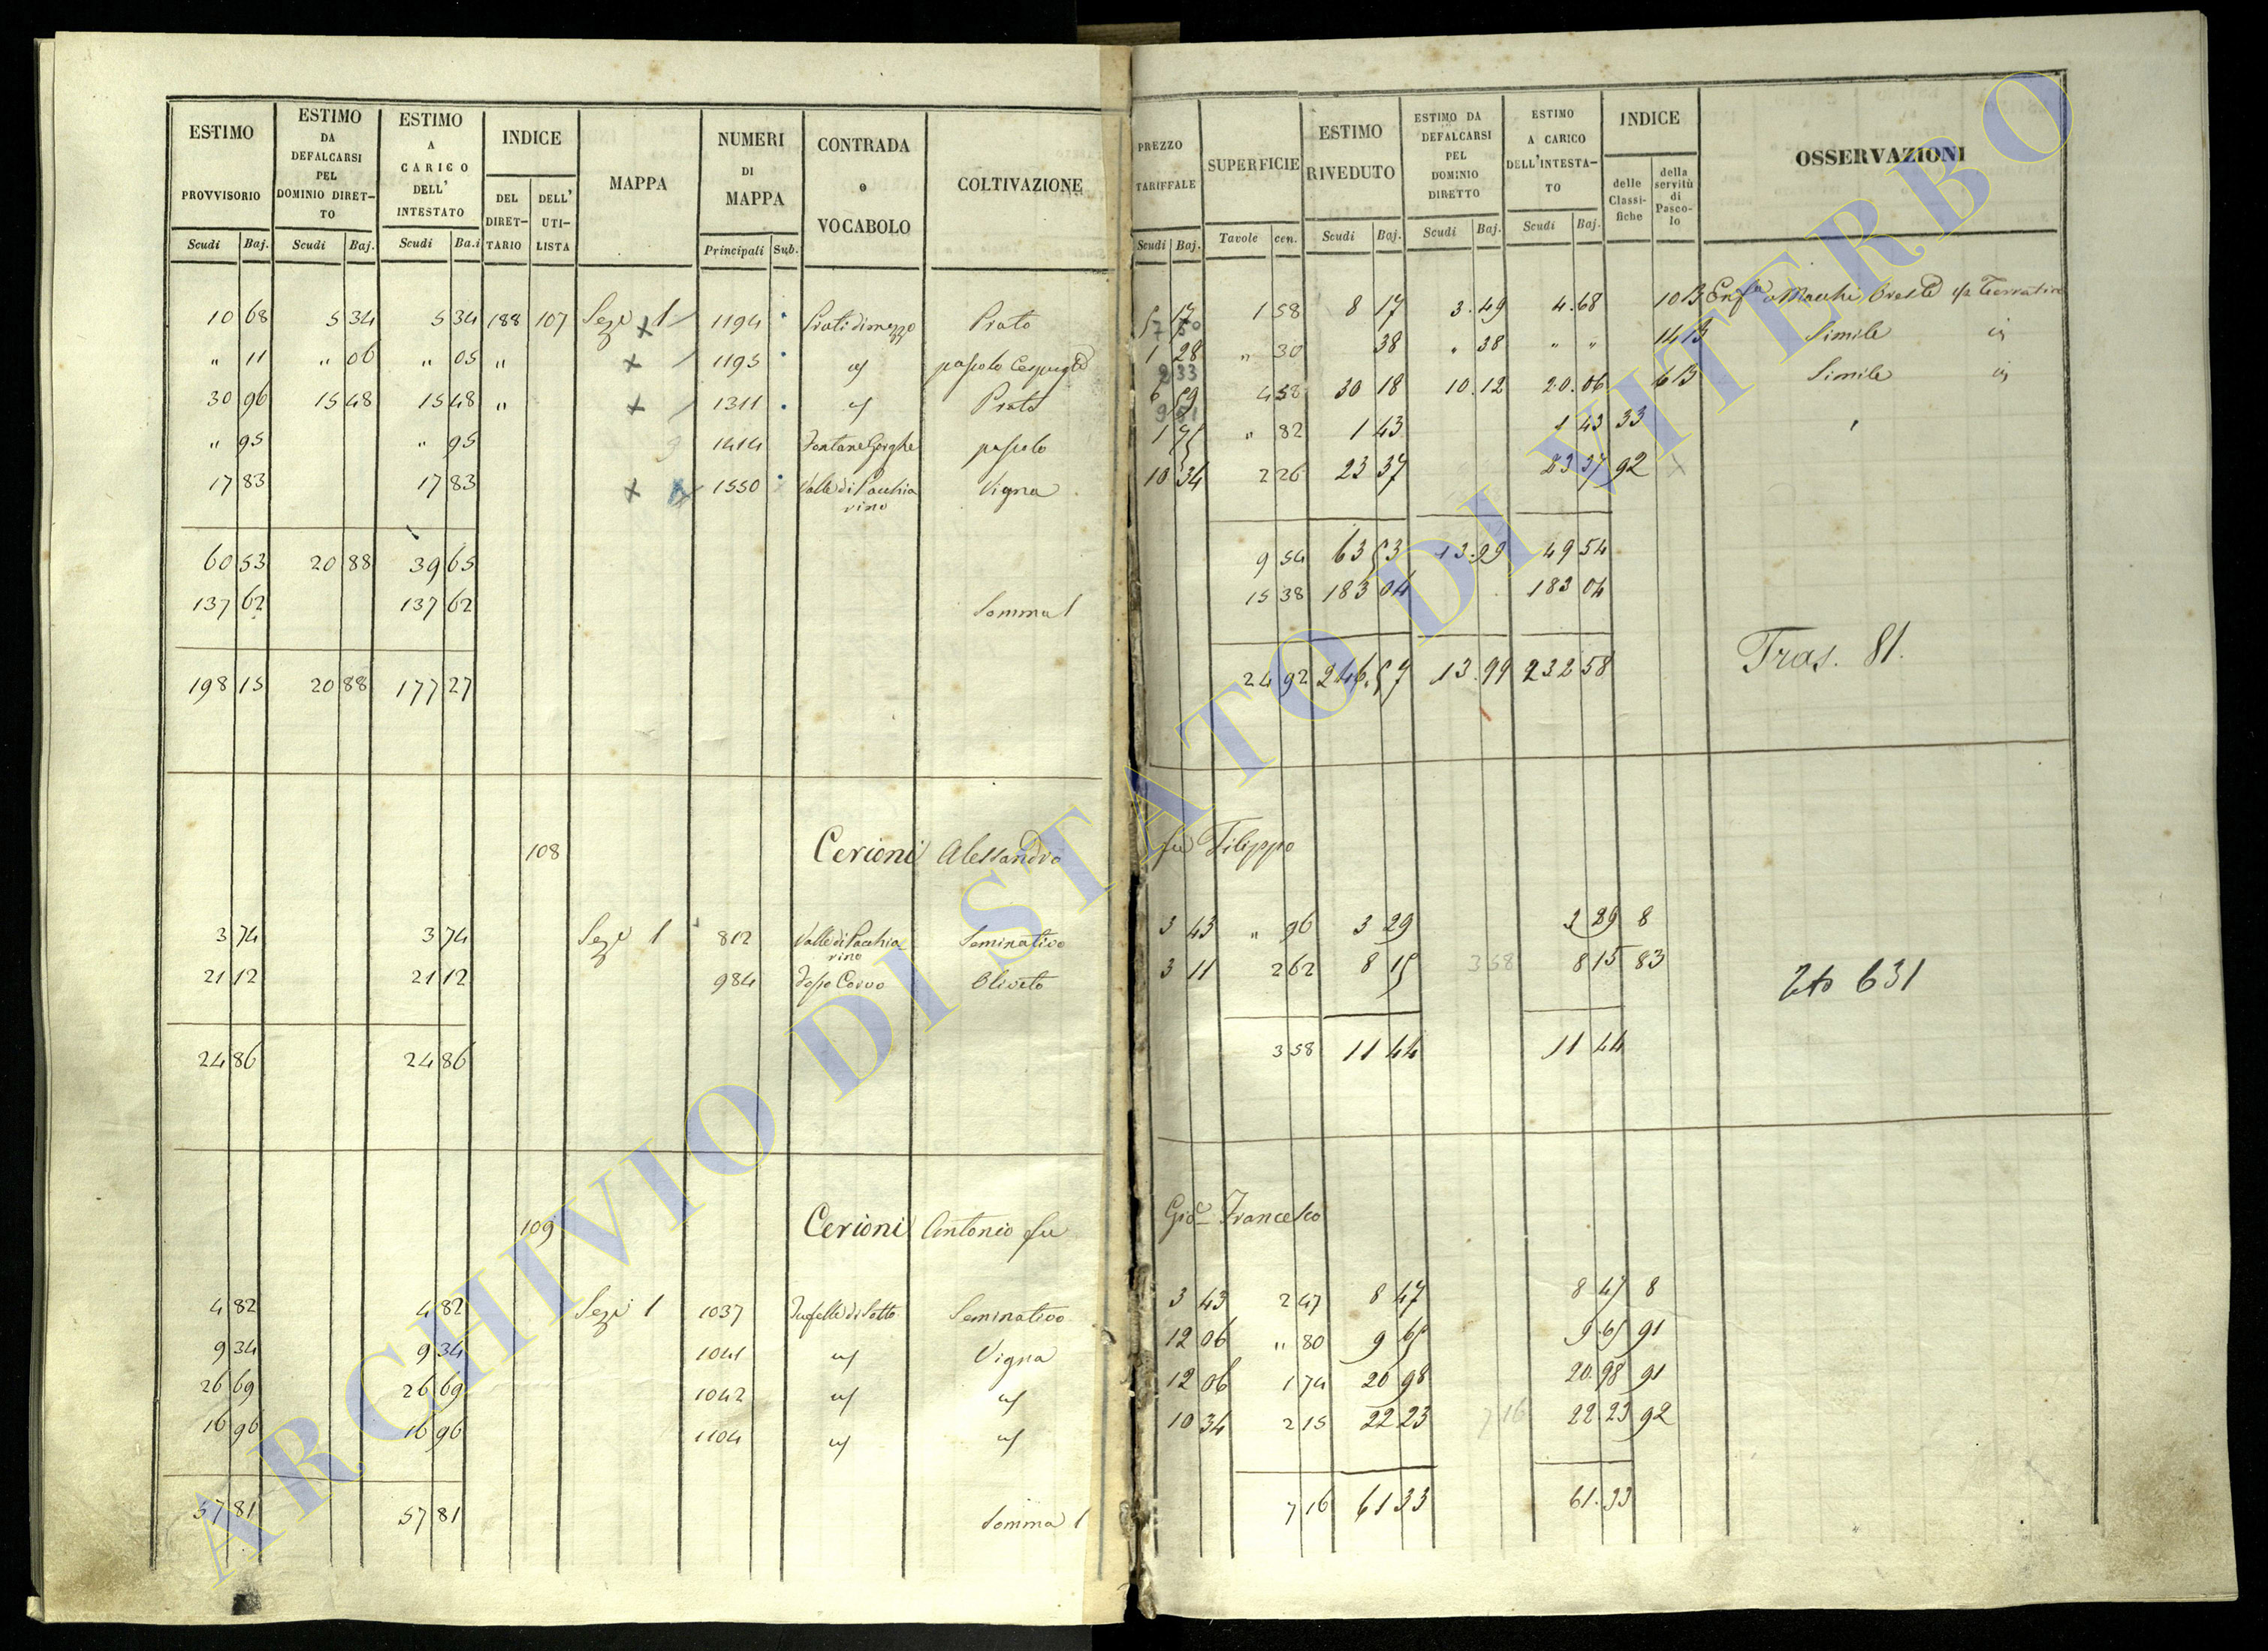 ESTIMO PROVVISORIO | ESTIMO DA DEFALCARSI PEL DOMINIO DIRET-TO | ESTIMO A CARICO DELL' INTESTATO | INDICE | MAPPA | NUMERI DI MAPPA | CONTRADA o VOCABOLO | COLTIVAZIONE | PREZZO TARIFFALE | SUPERFICIE | ESTIMO RIVEDUTO | ESTIMO DA DEFALCARSI PEL DOMINIO DIRETTO | ESTIMO A CARICO DELL'INTESTA-TO | INDICE | OSSERVAZIONI
DEL DIRET-TARIO | DELL' UTI-LISTA | delle Classi-fiche | della servitù di Pasco-lo
Scudi | Baj. | Scudi | Baj. | Scudi | Ba.i | Principali | Sub. | Scudi | Baj. | Tavole | cen. | Scudi | Baj. | Scudi | Baj. | Scudi | Baj.
10 68 | 5 34 | 5 34 | 188 | 107 | Seze 1 | 1194 | Prati di mezzo | Prato | 5 17 | 1 58 | 8 17 | 3.49 | 4.68 | 10 B | Enfa a Macchi Oreste
" 11 | " 06 | " 05 | " | 1195 | id | pascolo Cespugto | 1 28 | " 30 | 38 | " 38 | " " | 14 B | Simile id
30 96 | 15 48 | 15 48 | " | 1311 | id | Prato | 6 59 | 4 58 | 30 18 | 10.12 | 20.06 | 6 B | Simile id
" 95 | " 95 | 1414 | Fontane Gorghe | pascolo | 1 75 | " 82 | 1 43 | 1 43 | 33
17 83 | 17 83 | 1550 | Valle di Pacchiarino | Vigna | 10 34 | 2 26 | 23 37 | 23 37 | 92
60 53 | 20 88 | 39 65 | 9 54 | 63 53 | 13.99 | 49 54
137 62 | 137 62 | Somma 1 | 15 38 | 183 04 | 183 04
198 15 | 20 88 | 177 27 | 24 92 | 246.57 | 13.99 | 232 58 | Tras. 81.
108 | Cerioni Alessandro fu Filippo
3 74 | 3 74 | Seze 1 | 812 | Valle di Pacchiarino | Seminativo | 3 43 | " 96 | 3 29 | 3 29 | 8
21 12 | 21 12 | 984 | Fosso Corvo | Oliveto | 3 11 | 2 62 | 8 15 | 3 58 | 8 15 | 83 | 631
24 86 | 24 86 | 3 58 | 11 44 | 11 44
109 | Cerioni Antonio fu Gioe Francesco
4 82 | 4 82 | Seze 1 | 1037 | Tufelle di Sotto | Seminativo | 3 43 | 2 47 | 8 47 | 8 47 | 8
9 34 | 9 34 | 1041 | id | Vigna | 12 06 | " 80 | 9 65 | 9.65 | 91
26 69 | 26 69 | 1042 | id | id | 12 06 | 1 74 | 20 98 | 20.98 | 91
16 96 | 16 96 | 1104 | id | id | 10 34 | 2 15 | 22 23 | 7 16 | 22 23 | 92
57 81 | 57 81 | Somma 1 | 7 16 | 61 33 | 61.33
ARCHIVIO DI STATO DI VITERBO